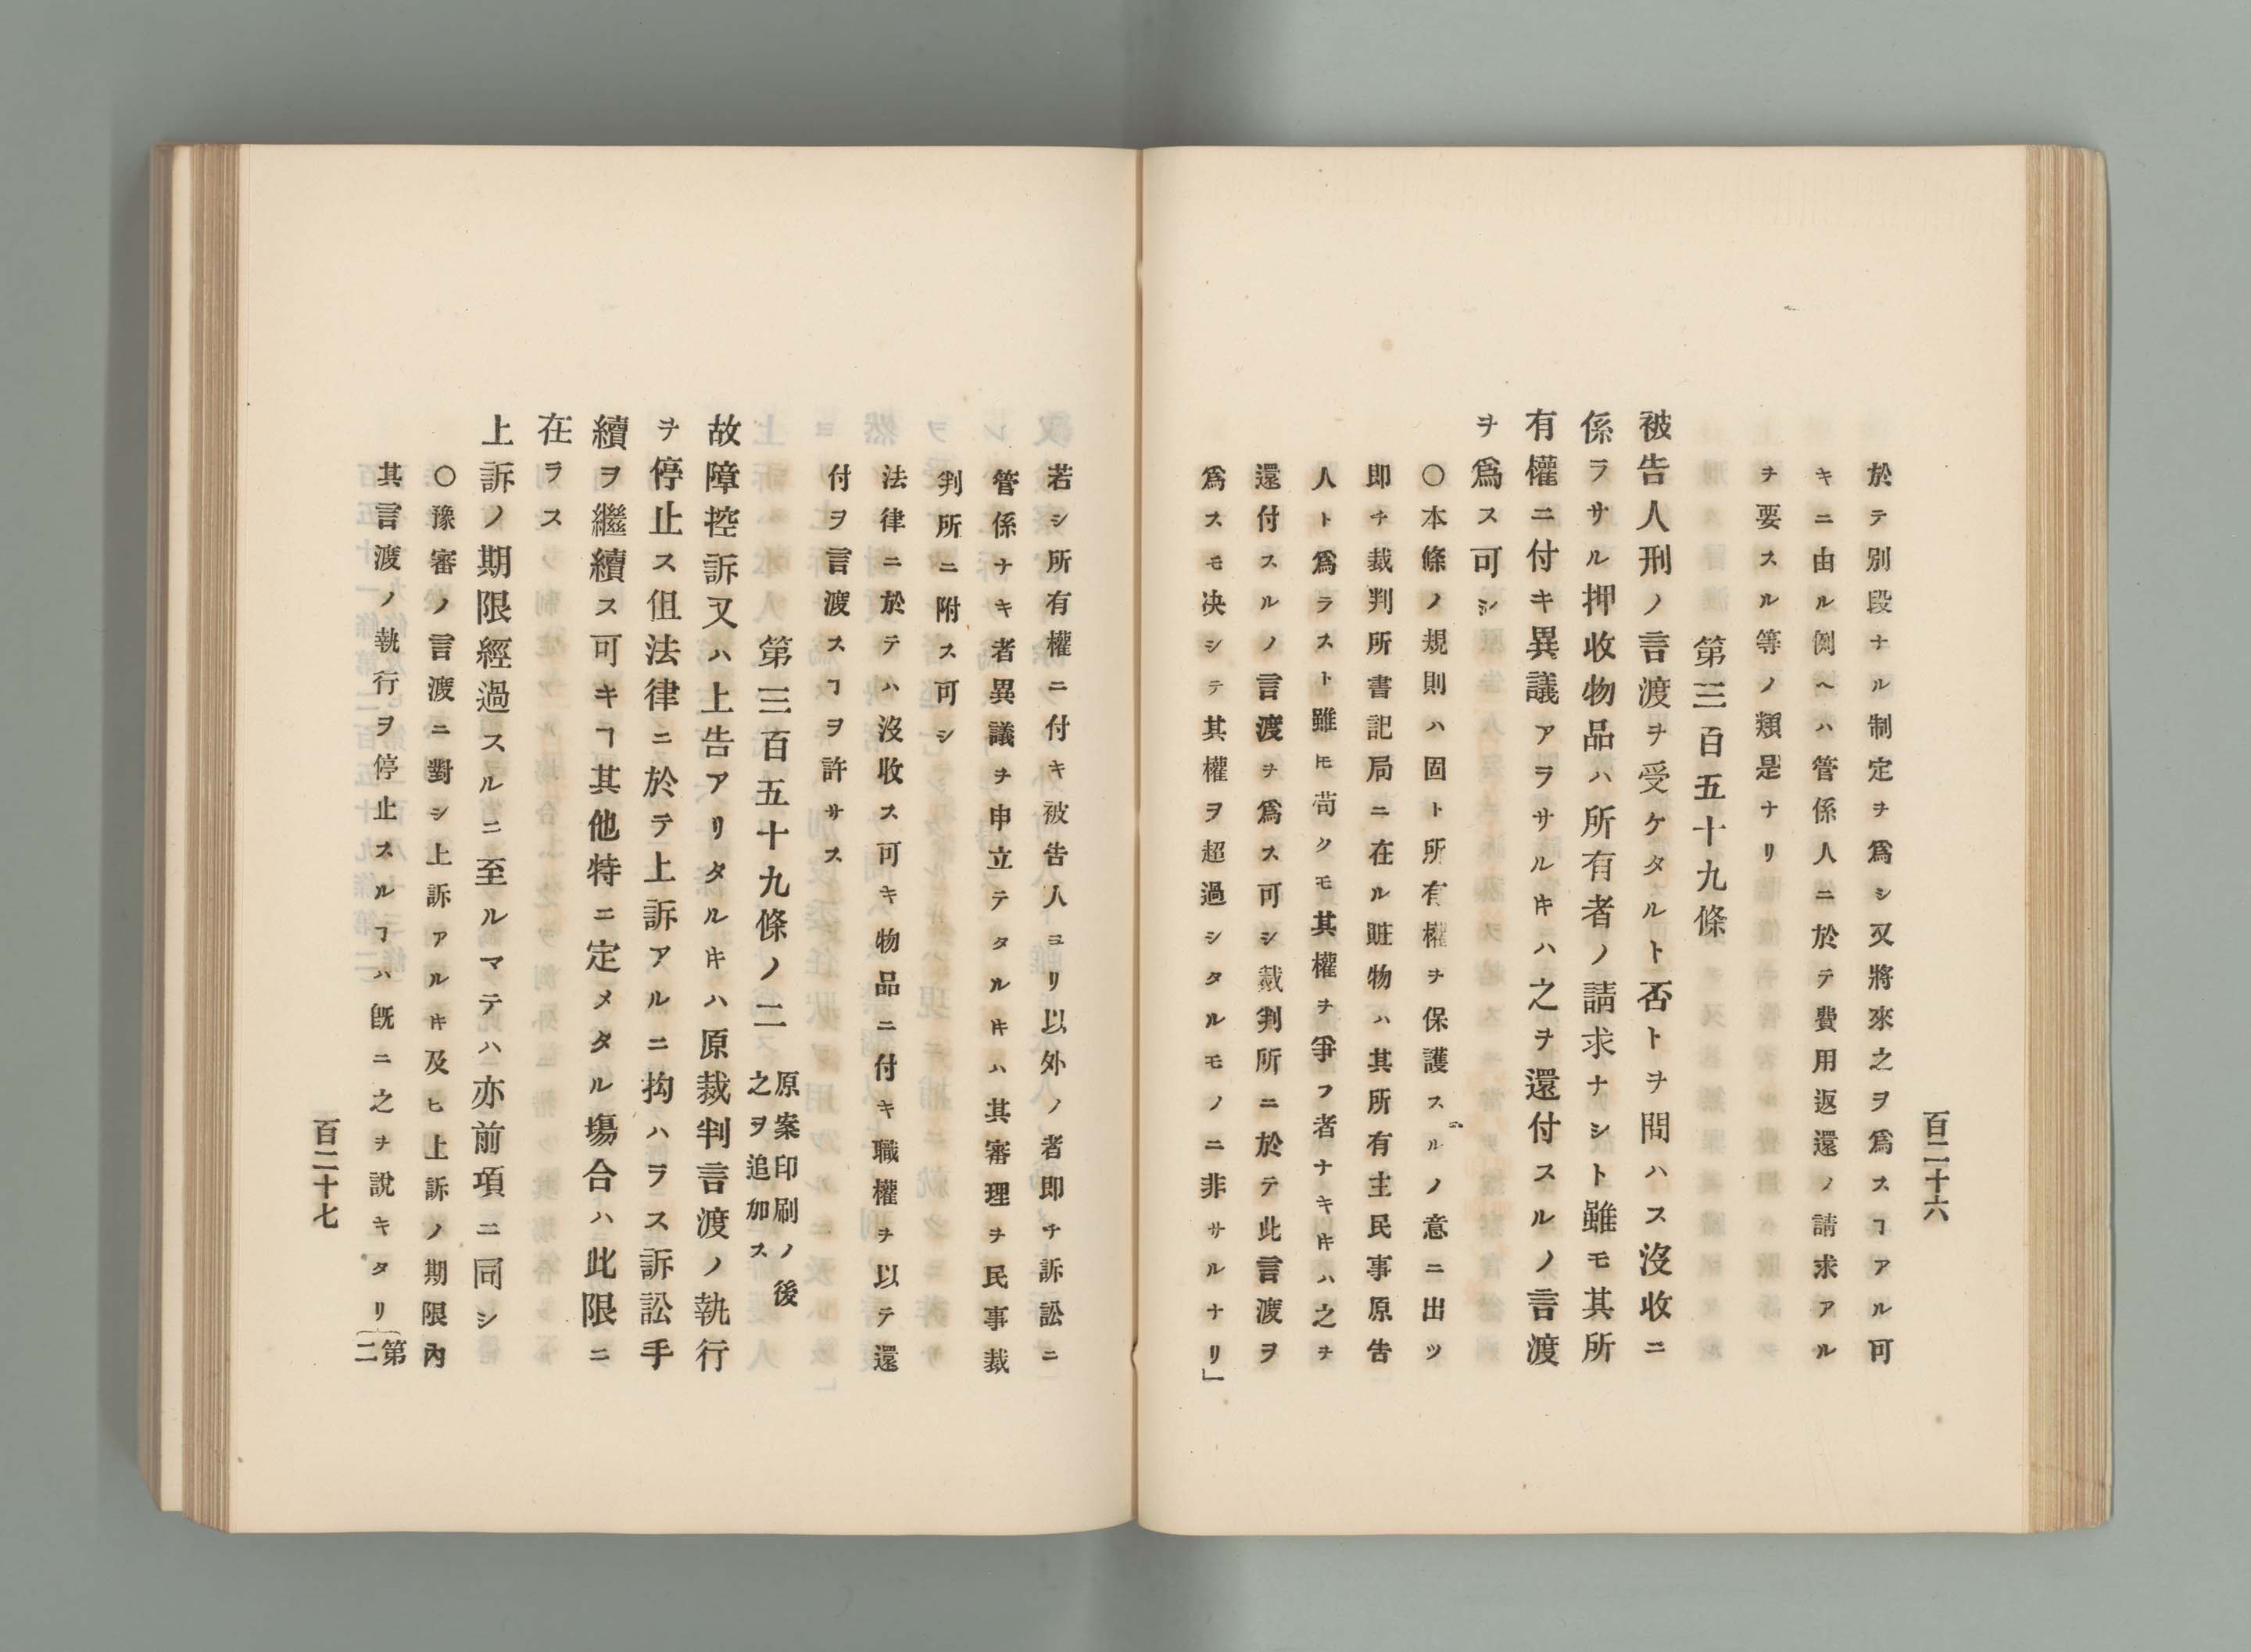 百二十六
於テ別段ナル制定ヲ爲シ又將來之ヲ爲スヿアル可
キニ由ル例ヘハ管係人ニ於テ費用返還ノ請求アル
ヲ要スル等ノ類是ナリ
第三百五十九條
被告人刑ノ言渡ヲ受ケタルト否トヲ問ハス沒收ニ
係ラサル押收物品ハ所有者ノ請求ナシト雖モ其所
有權ニ付キ異議アラサルキハ之ヲ還付スルノ言渡
ヲ爲ス可シ
〇本條ノ規則ハ固ト所有權ヲ保護スルノ意ニ出ツ
即チ裁判所書記局ニ在ル賍物ハ其所有主民事原告
人ト爲ラスト雖𪜈苟クモ其權ヲ爭フ者ナキキハ之ヲ
還付スルノ言渡ヲ爲ス可シ裁判所ニ於テ此言渡ヲ
爲スモ决シテ其權ヲ超過シタルモノニ非サルナリ」
若シ所有權ニ付キ被告人ヨリ以外ノ者即チ訴訟ニ
管係ナキ者異議ヲ申立テタルキハ其審理ヲ民事裁
判所ニ附ス可シ
法律ニ於テハ沒收ス可キ物品ニ付キ職權ヲ以テ還
付ヲ言渡スヿヲ許サス
第三百五十九條ノ二 原案印刷ノ後
之ヲ追加ス
故障控訴又ハ上告アリタルキハ原裁判言渡ノ執行
ヲ停止ス伹法律ニ於テ上訴アルニ拘ハラス訴訟手
續ヲ繼續ス可キヿ其他特ニ定メタル塲合ハ此限ニ
在ラス
上訴ノ期限經過スルニ至ルマテハ亦前項ニ同シ
〇豫審ノ言渡ニ對シ上訴アルキ及ヒ上訴ノ期限內
其言渡ノ執行ヲ停止スルヿハ旣ニ之ヲ說キタリ（第
二
百二十七